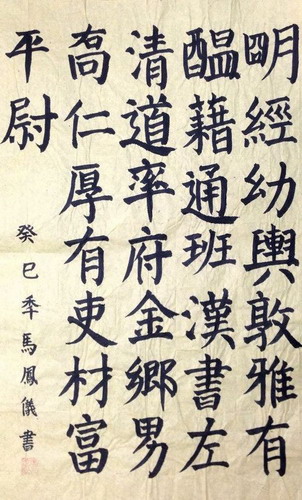 明經幼輿敦雅有
醞藉通班漢書左
清道率府金鄉男
髙仁厚有吏材富
平尉
癸巳秊馬鳳儀書